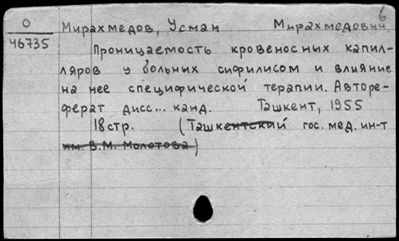 6
О
46735
Мирахмедов, Усман Мирахмедович
Проницаемость кровеносных капил-
ляров у больных сифилисом и влияние
на нее специфической терапии. Авторе-
ферат дисс... канд. Ташкент, 1955
18стр. (Ташкентский гос. мед. ин-т
им. В.М. Молотова)